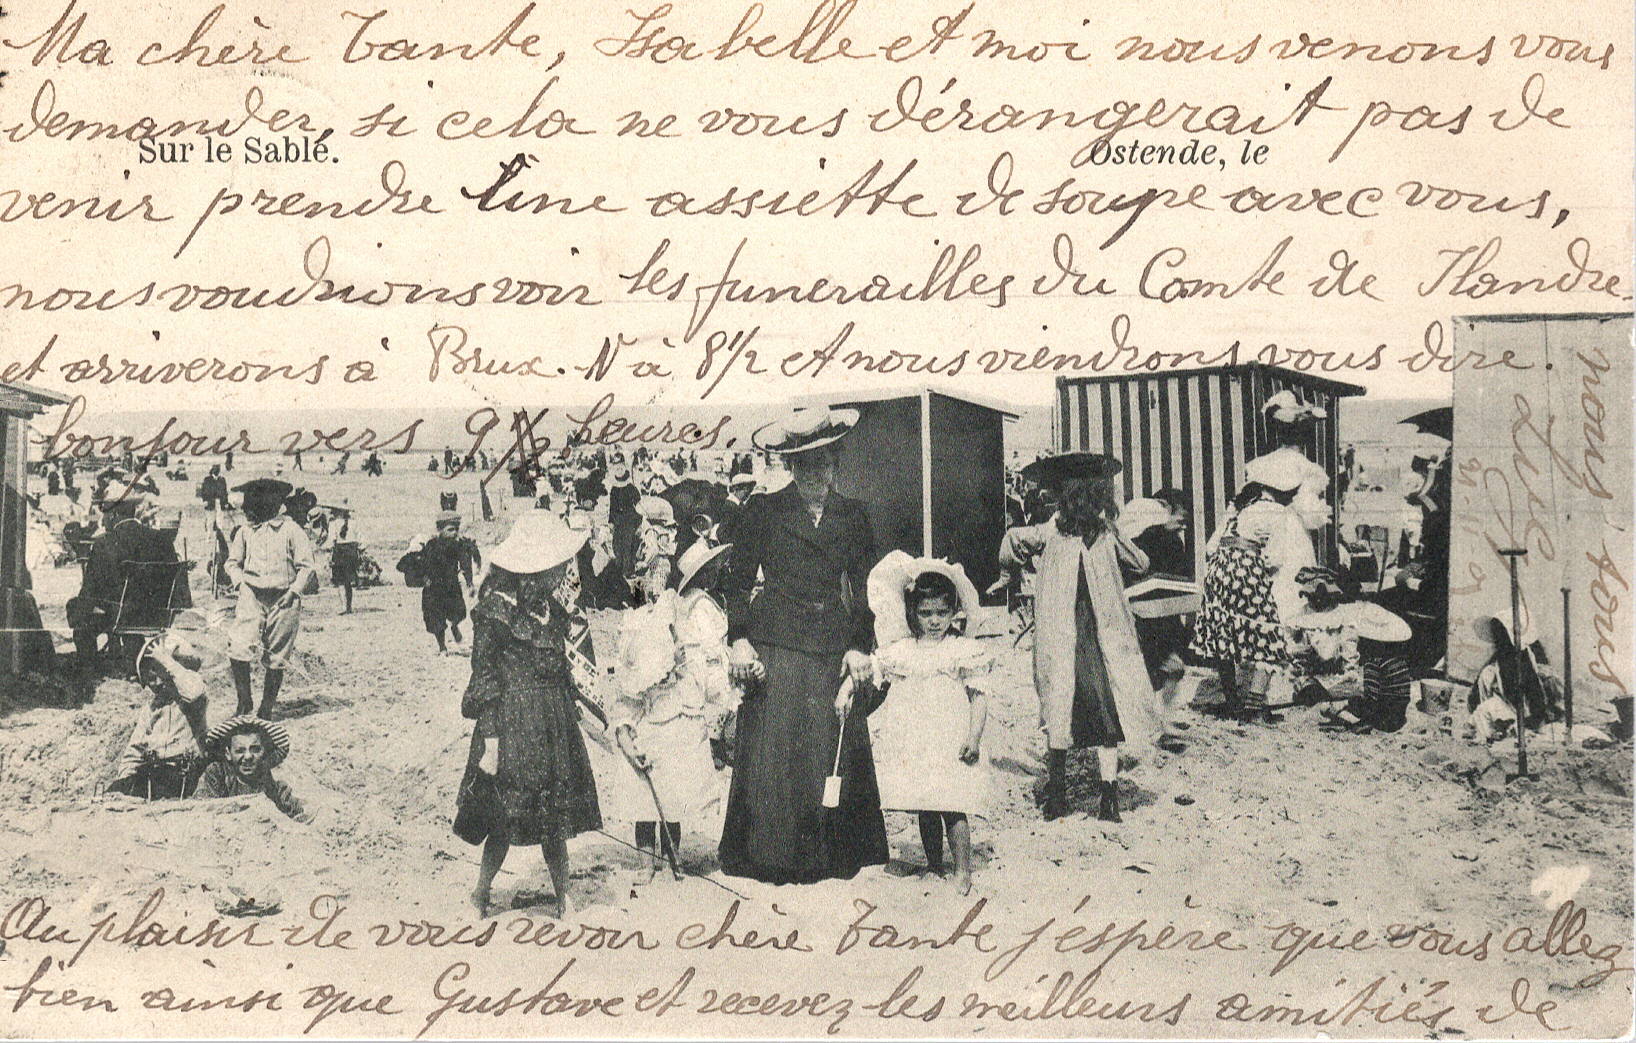 Ma chère Tante, Isabelle et moi nous venons vous
demander, si cela ne vous dérangerait pas de
Sur le Sable.
Ostende, le
venir prendre une assiette de soupe avec vous,
nous voudrions voir les funerailles du Comte de Flandre
et arriverons à Brux. N à 8 1/2 et nous viendrons vous dire
bonjour vers 9 heures.
Au plaisir de vous revoir chère Tante j'éspère que vous allez
bien ainsi que Gustave et recevez les meilleurs amitiés de
nous tous